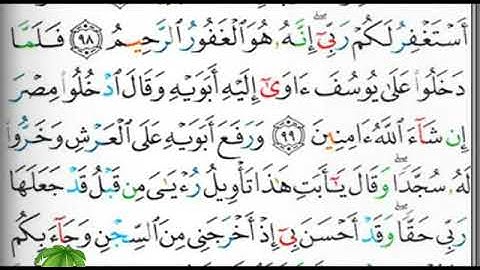 أَسْتَغْفِرُ لَكُمْ رَبِّيٓ إِنَّهُۥ هُوَ ٱلْغَفُورُ ٱلرَّحِيمُ ٩٨ فَلَمَّا
دَخَلُوا۟ عَلَىٰ يُوسُفَ ءَاوَىٰٓ إِلَيْهِ أَبَوَيْهِ وَقَالَ ٱدْخُلُوا۟ مِصْرَ
إِن شَآءَ ٱللَّهُ ءَامِنِينَ ٩٩ وَرَفَعَ أَبَوَيْهِ عَلَى ٱلْعَرْشِ وَخَرُّوا۟
لَهُۥ سُجَّدًا ۖ وَقَالَ يَٰٓأَبَتِ هَٰذَا تَأْوِيلُ رُءْيَٰىَ مِن قَبْلُ قَدْ جَعَلَهَا
رَبِّي حَقًّا ۖ وَقَدْ أَحْسَنَ بِيٓ إِذْ أَخْرَجَنِي مِنَ ٱلسِّجْنِ وَجَآءَ بِكُم